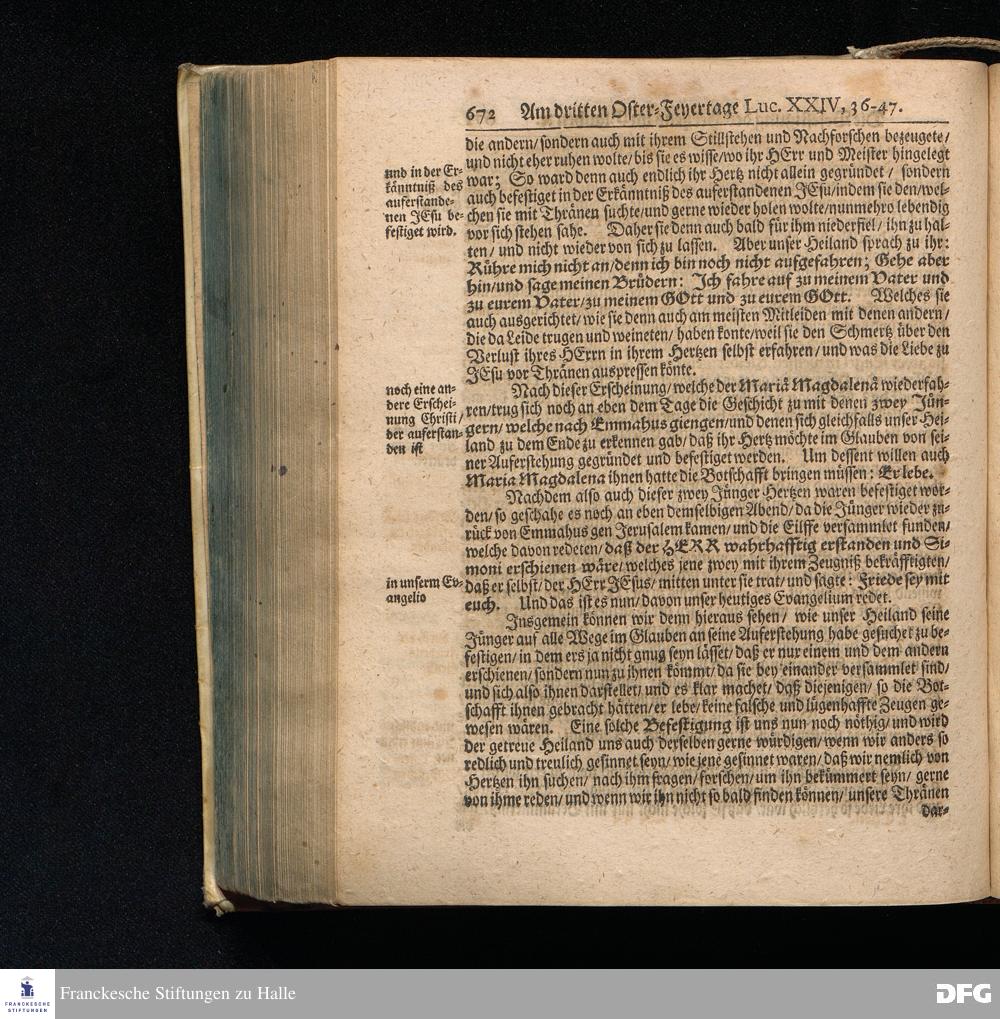 672 Am dritten Oster-Feyertage Luc. XXIV, 36-47.
die andern/ sondern auch mit ihrem Stillstehen und Nachforschen bezeugete/
und nicht eher ruhen wolte/ bis sie es wisse/ wo ihr HErr und Meister hingelegt
war; So ward denn auch endlich ihr Hertz nicht allein gegründet/ sondern
auch befestiget in der Erkänntniß des auferstandenen JEsu/ indem sie den/ wel-
chen sie mit Thränen suchte/ und gerne wieder holen wolte/ nunmehro lebendig
vor sich stehen sahe. Daher sie denn auch bald für ihm niederfiel/ ihn zu hal-
ten/ und nicht wieder von sich zu lassen. Aber unser Heiland sprach zu ihr:
Rühre mich nicht an/ denn ich bin noch nicht aufgefahren; Gehe aber
hin/ und sage meinen Brüdern: Ich fahre auf zu meinem Vater und
zu eurem Vater/ zu meinem GOtt und zu eurem GOtt. Welches sie
auch ausgerichtet/ wie sie denn auch am meisten Mitleiden mit denen andern/
die da Leide trugen und weineten/ haben konte/ weil sie den Schmertz über den
Verlust ihres HErrn in ihrem Hertzen selbst erfahren/ und was die Liebe zu
JEsu vor Thränen auspressen könte.
und in der Er-
känntniß des
auferstande-
nen JEsu be-
festiget wird.
Nach dieser Erscheinung/ welche der Mariä Magdalenä wiederfah-
ren/ trug sich noch an eben dem Tage die Geschicht zu mit denen zwey Jün-
gern/ welche nach Emmahus giengen/ und denen sich gleichfalls unser Hei-
land zu dem Ende zu erkennen gab/ daß ihr Hertz möchte im Glauben von sei-
ner Auferstehung gegründet und befestiget werden. Um dessent willen auch
Maria Magdalena ihnen hatte die Botschafft bringen müssen: Er lebe.
noch eine an-
dere Erschei-
nung Christi/
der auferstan-
den ist
Nachdem also auch dieser zwey Jünger Hertzen waren befestiget wor-
den/ so geschahe es noch an eben demselbigen Abend/ da die Jünger wieder zu-
rück von Emmahus gen Jerusalem kamen/ und die Eilffe versammlet funden/
welche davon redeten/ daß der HERR wahrhafftig erstanden und Si-
moni erschienen wäre/ welches jene zwey mit ihrem Zeugniß bekräfftigten/
daß er selbst/ der HErr JEsus/ mitten unter sie trat/ und sagte: Friede sey mit
euch. Und das ist es nun/ davon unser heutiges Evangelium redet.
in unserm Ev-
angelio
Insgemein können wir denn hieraus sehen/ wie unser Heiland seine
Jünger auf alle Wege im Glauben an seine Auferstehung habe gesuchet zu be-
festigen/ in dem ers ja nicht gnug seyn lässet/ daß er nur einem und dem andern
erschienen/ sondern nun zu ihnen kömmt/ da sie bey einander versammlet sind/
und sich also ihnen darstellet/ und es klar machet/ daß diejenigen/ so die Bot-
schafft ihnen gebracht hätten/ er lebe/ keine falsche und lügenhaffte Zeugen ge-
wesen wären. Eine solche Befestigung ist uns nun noch nöthig/ und wird
der getreue Heiland uns auch derselben gerne würdigen/ wenn wir anders so
redlich und treulich gesinnet seyn/ wie jene gesinnet waren/ daß wir nemlich von
Hertzen ihn suchen/ nach ihm fragen/ forschen/ um ihn bekümmert seyn/ gerne
von ihme reden/ und wenn wir ihn nicht so bald finden können/ unsere Thränen
dar-
FRANCKESCHE
STIFTUNGEN
Franckesche Stiftungen zu Halle
DFG